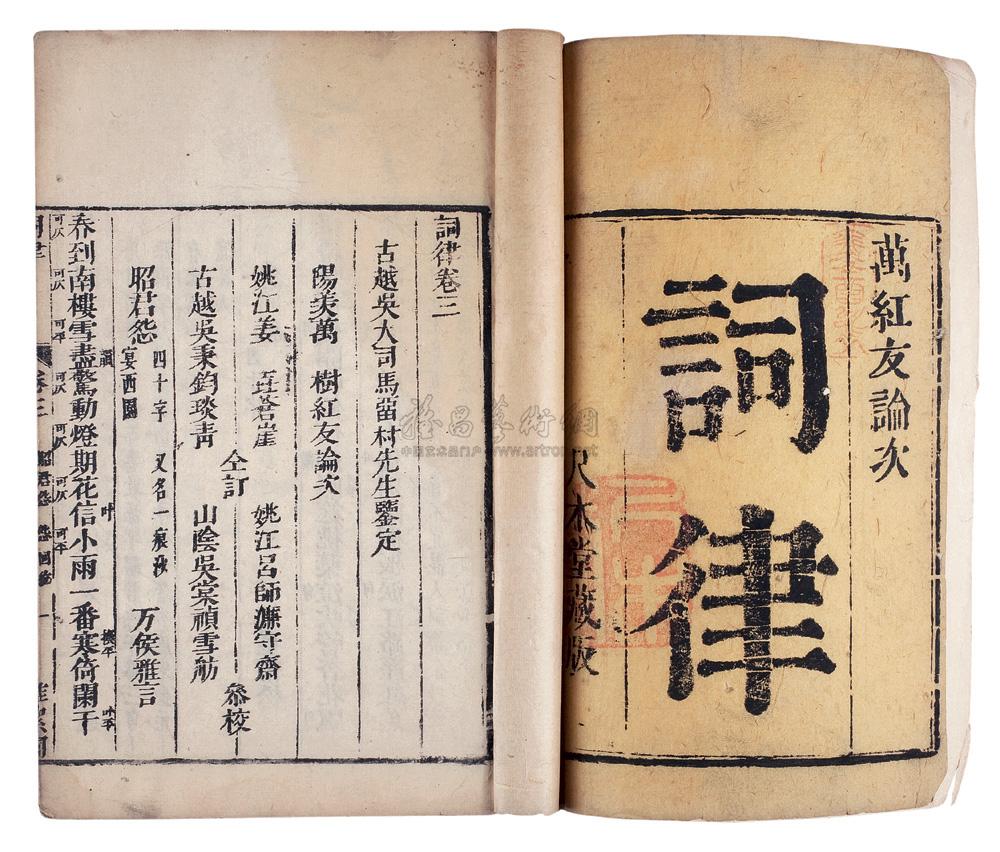 萬紅友論次
詞律
尺木堂藏版
詞律卷三
古越吳大司馬留村先生鑒定
陽羨萬　樹紅友論次
姚江姜　垚蒼崖　姚江呂師濂守齋
仝訂　參校
古越吳秉鈞琰青　山陰吳棠禎雪舫
昭君怨　四十字　又名一痕沙　万俟雅言
宴西園
春到南樓雪盡驚動燈期花信小雨一番寒倚闌干
可仄　可仄　可平　韻　可仄　可仄　可仄　叶　可平　換平　叶平
www.artron.net